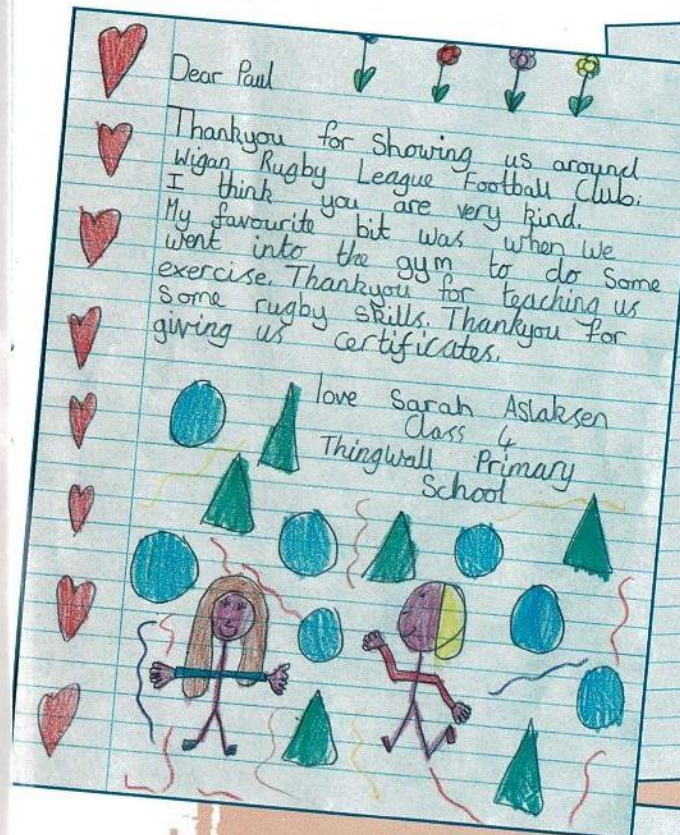 Dear Paul
Thankyou for showing us around
Wigan Rugby League Football Club.
I think you are very kind.
My favourite bit was when we
went into the gym to do some
exercise. Thankyou for teaching us
some rugby skills. Thankyou for
giving us certificates.
love Sarah Aslaksen
Class 4
Thingwall Primary
School